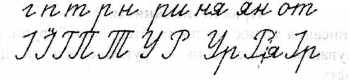 г п т р н ри ня ян от
І Ї Г П Т У Р Ур Ря Ір